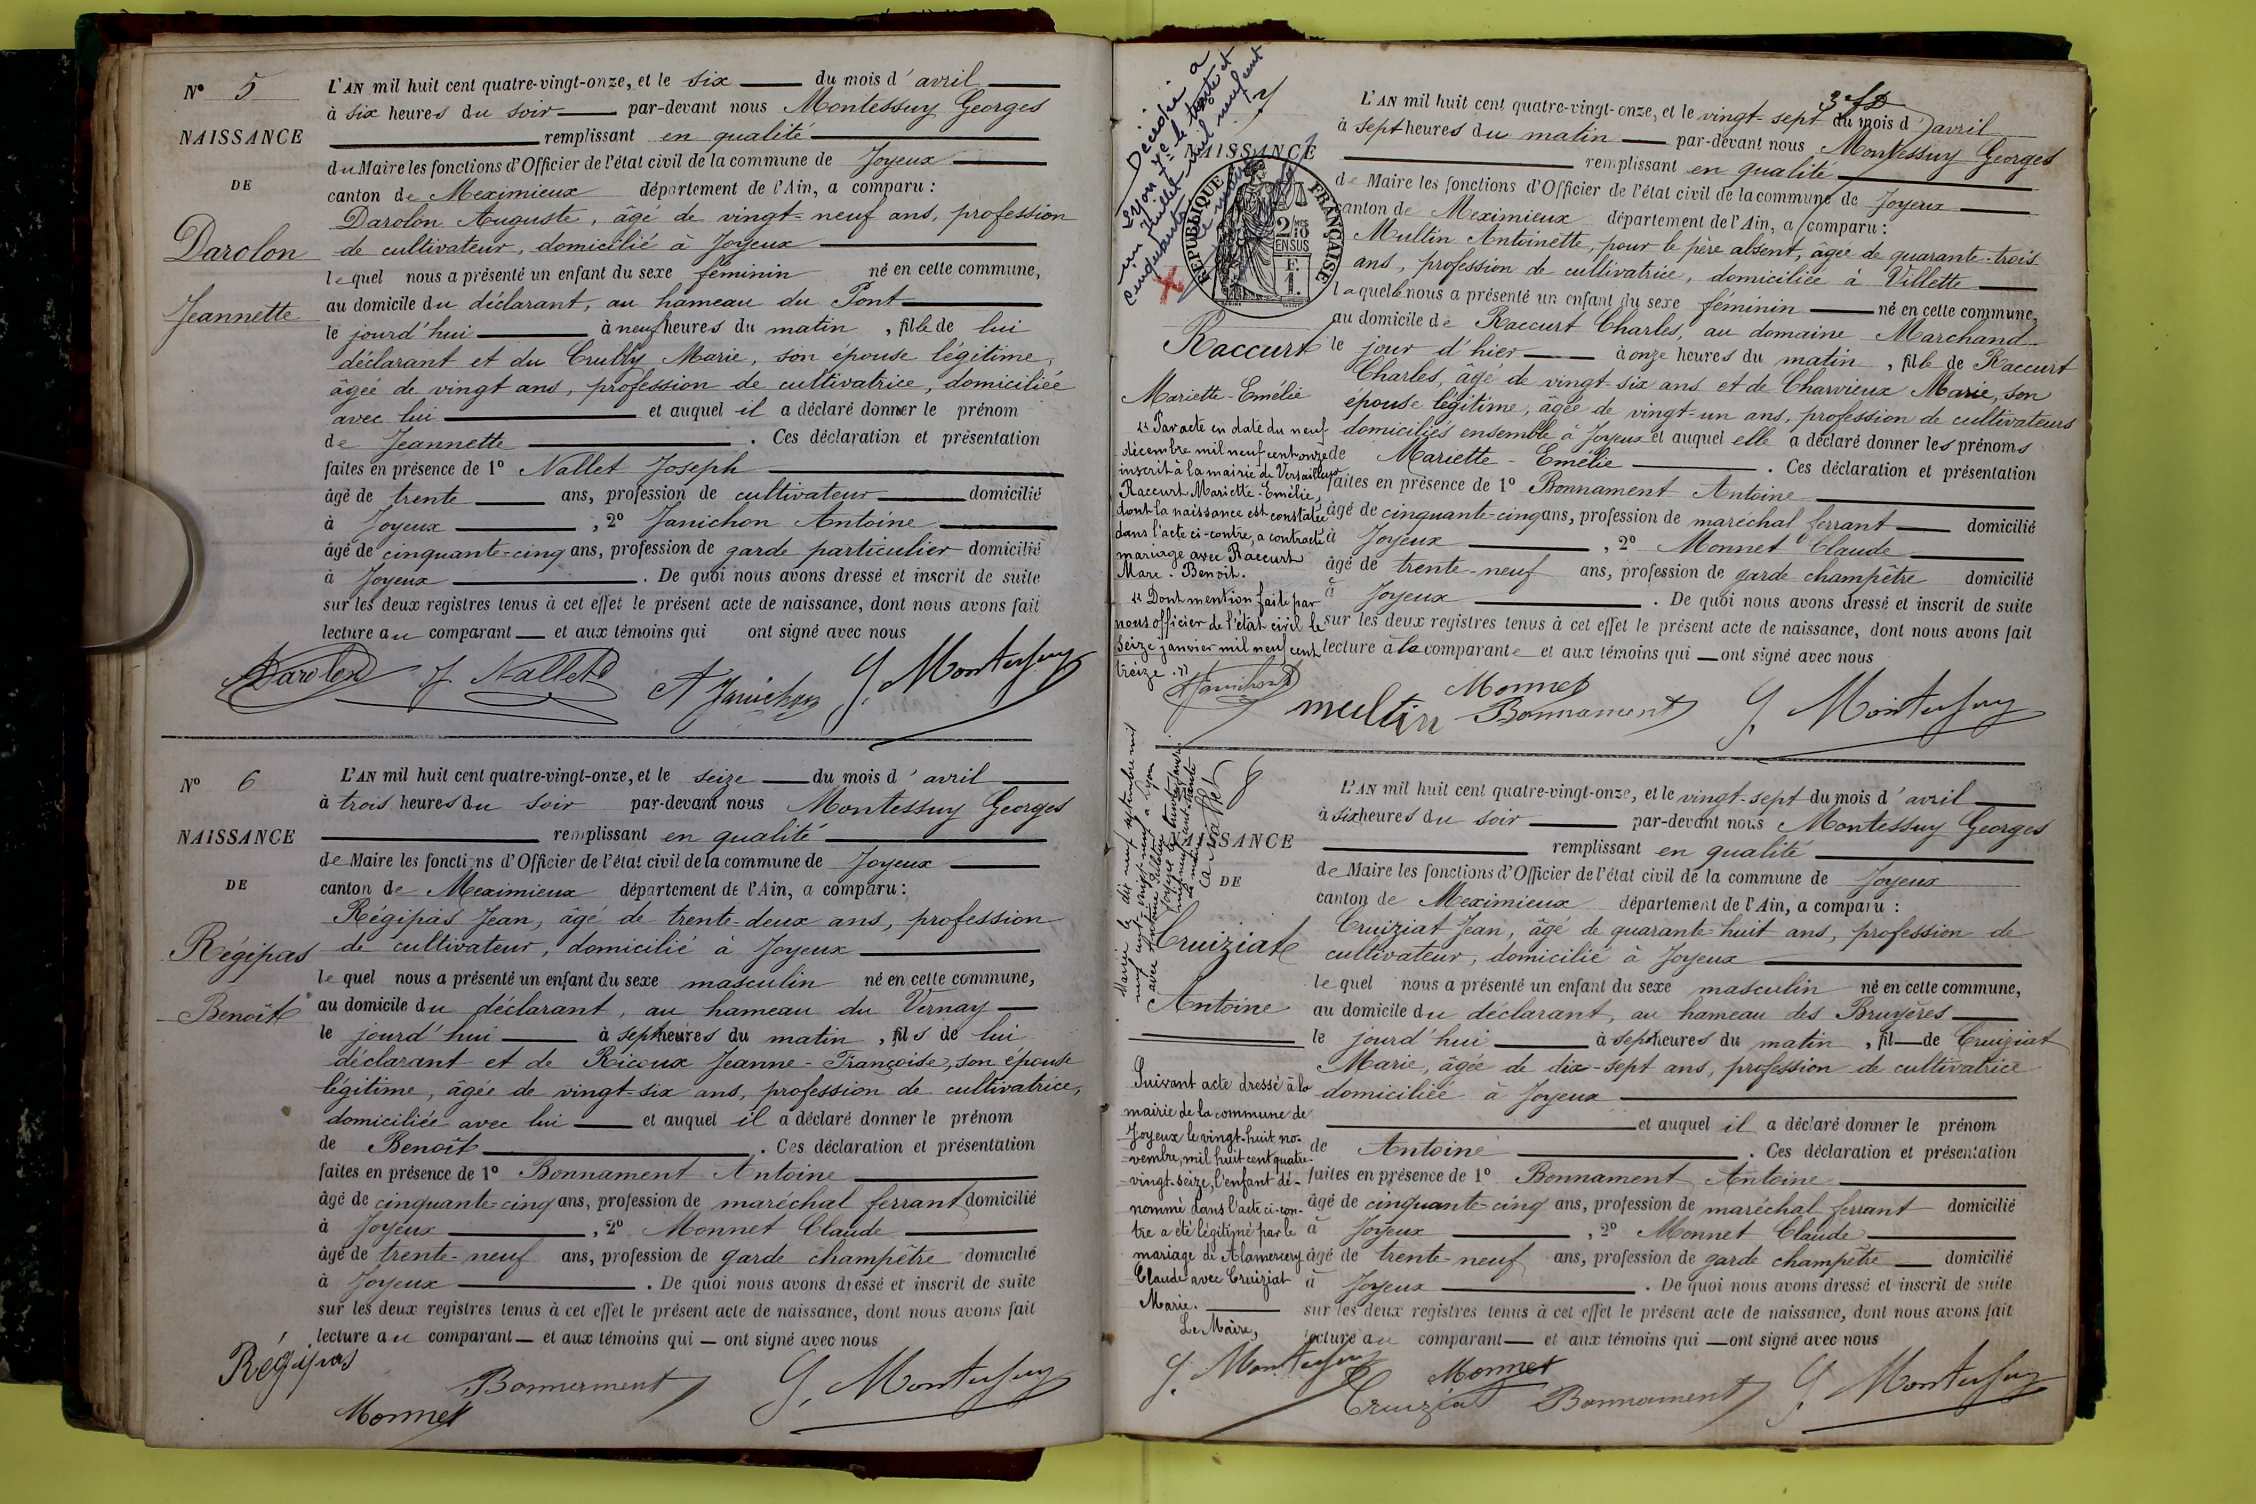 N° 5
NAISSANCE
DE
Darolon
Jeannette
L'AN mil huit cent quatre-vingt-onze, et le six du mois d'avril
à six heures du soir par-devant nous Montessuy Georges
remplissant en qualité
du Maire les fonctions d'Officier de l'état civil de la commune de Joyeux
canton de Meximieux département de l'Ain, a comparu :
Darolon Auguste, âgé de vingt-neuf ans, profession
de cultivateur, domicilié à Joyeux
lequel nous a présenté un enfant du sexe féminin né en cette commune,
au domicile du déclarant, au hameau du Pont
le jourd'hui à neuf heures du matin, fille de lui
déclarant et du Marie, son épouse légitime,
âgée de vingt ans, profession de cultivatrice, domiciliée
avec lui et auquel il a déclaré donner le prénom
de Jeannette. Ces déclaration et présentation
faites en présence de 1° Nallet Joseph
âgé de trente ans, profession de cultivateur domicilié
à Joyeux, 2° Janichon Antoine
âgé de cinquante-cinq ans, profession de garde particulier domicilié
à Joyeux. De quoi nous avons dressé et inscrit de suite
sur les deux registres tenus à cet effet le présent acte de naissance, dont nous avons fait
lecture au comparant et aux témoins qui ont signé avec nous
Darolon J Nallet A Janichon G. Montessuy
N° 6
NAISSANCE
DE
Régipas
Benoît
L'AN mil huit cent quatre-vingt-onze, et le seize du mois d'avril
à trois heures du soir par-devant nous Montessuy Georges
remplissant en qualité
de Maire les fonctions d'Officier de l'état civil de la commune de Joyeux
canton de Meximieux département de l'Ain, a comparu :
Régipas Jean, âgé de trente-deux ans, profession
de cultivateur, domicilié à Joyeux
lequel nous a présenté un enfant du sexe masculin né en cette commune,
au domicile du déclarant, au hameau du Vernay
le jourd'hui à sept heures du matin, fils de lui
déclarant et de Ricoux Jeanne-Françoise, son épouse
légitime, âgée de vingt-six ans, profession de cultivatrice,
domiciliée avec lui et auquel il a déclaré donner le prénom
de Benoît. Ces déclaration et présentation
faites en présence de 1° Bonnament Antoine
âgé de cinquante-cinq ans, profession de maréchal ferrant domicilié
à Joyeux, 2° Monnet Claude
âgé de trente-neuf ans, profession de garde champêtre domicilié
à Joyeux. De quoi nous avons dressé et inscrit de suite
sur les deux registres tenus à cet effet le présent acte de naissance, dont nous avons fait
lecture au comparant et aux témoins qui ont signé avec nous
Régipas
Bonnament G. Montessuy
Monnet
Décédée à
Lyon 7e le trente et
un juillet mil neuf cent
cinquante
7
NAISSANCE
RÉPUBLIQUE FRANÇAISE
2/10
EN SUS
F.
1.
Raccurt
Mariette-Emélie
"Par acte en date du neuf
décembre mil neuf cent onze
inscrit à la mairie de Versailleux
Raccurt Mariette-Emélie,
dont la naissance est constatée
dans l'acte ci-contre, a contracté
mariage avec Raccurt
Marc-Benoît.
"Dont mention faite par
nous officier de l'état civil le
seize janvier mil neuf cent
treize."
Janichon
L'AN mil huit cent quatre-vingt-onze, et le vingt-sept du mois d'avril
à sept heures du matin par-devant nous Montessuy Georges
remplissant en qualité
de Maire les fonctions d'Officier de l'état civil de la commune de Joyeux
canton de Meximieux département de l'Ain, a comparu :
Multin Antoinette, pour le père absent, âgée de quarante-trois
ans, profession de cultivatrice, domiciliée à Villette
laquelle nous a présenté un enfant du sexe féminin né en cette commune,
au domicile de Raccurt Charles, au domaine Marchand
le jour d'hier à onze heures du matin, fille de Raccurt
Charles, âgé de vingt-six ans et de Charvieux Marie, son
épouse légitime, âgée de vingt-un ans, profession de cultivateurs
domiciliés ensemble à Joyeux et auquel elle a déclaré donner les prénoms
de Mariette-Emélie. Ces déclaration et présentation
faites en présence de 1° Bonnament Antoine
âgé de cinquante-cinq ans, profession de maréchal ferrant domicilié
à Joyeux, 2° Monnet Claude
âgé de trente-neuf ans, profession de garde champêtre domicilié
à Joyeux. De quoi nous avons dressé et inscrit de suite
sur les deux registres tenus à cet effet le présent acte de naissance, dont nous avons fait
lecture à la comparante et aux témoins qui ont signé avec nous
Monnet
multin Bonnament G. Montessuy
Marié le dix neuf septembre mil
neuf cent vingt neuf à Lyon
avec
8
NAISSANCE
DE
Cruiziat
Antoine
Suivant acte dressé à la
mairie de la commune de
Joyeux le vingt-huit no-
vembre, mil huit cent quatre-
vingt-seize, l'enfant dé-
nommé dans l'acte ci-con-
tre a été légitimé par le
mariage de Alamercery
Claude avec Cruiziat
Marie.
Le Maire,
G. Montessuy
L'AN mil huit cent quatre-vingt-onze, et le vingt-sept du mois d'avril
à six heures du soir par-devant nous Montessuy Georges
remplissant en qualité
de Maire les fonctions d'Officier de l'état civil de la commune de Joyeux
canton de Meximieux département de l'Ain, a comparu :
Cruiziat Jean, âgé de quarante-huit ans, profession de
cultivateur, domicilié à Joyeux
lequel nous a présenté un enfant du sexe masculin né en cette commune,
au domicile du déclarant, au hameau des Bruyères
le jourd'hui à sept heures du matin, fil de Cruiziat
Marie, âgée de dix-sept ans, profession de cultivatrice
domiciliée à Joyeux
et auquel il a déclaré donner le prénom
de Antoine. Ces déclaration et présentation
faites en présence de 1° Bonnament Antoine
âgé de cinquante-cinq ans, profession de maréchal ferrant domicilié
à Joyeux, 2° Monnet Claude
âgé de trente-neuf ans, profession de garde champêtre domicilié
à Joyeux. De quoi nous avons dressé et inscrit de suite
sur les deux registres tenus à cet effet le présent acte de naissance, dont nous avons fait
lecture au comparant et aux témoins qui ont signé avec nous
Monnet
Cruiziat Bonnament G. Montessuy